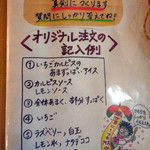 真剣につくります
質問にしっかり答えてね!
<オリジナル注文の
記入例>
① いちごカルピスの
あまずっぱいアイス
② カルピスソース
レモンソース
③ 全体あまく、すっぱく
④ いちご
⑤ ラズベリー、白玉
レモン氷、ナタデココ